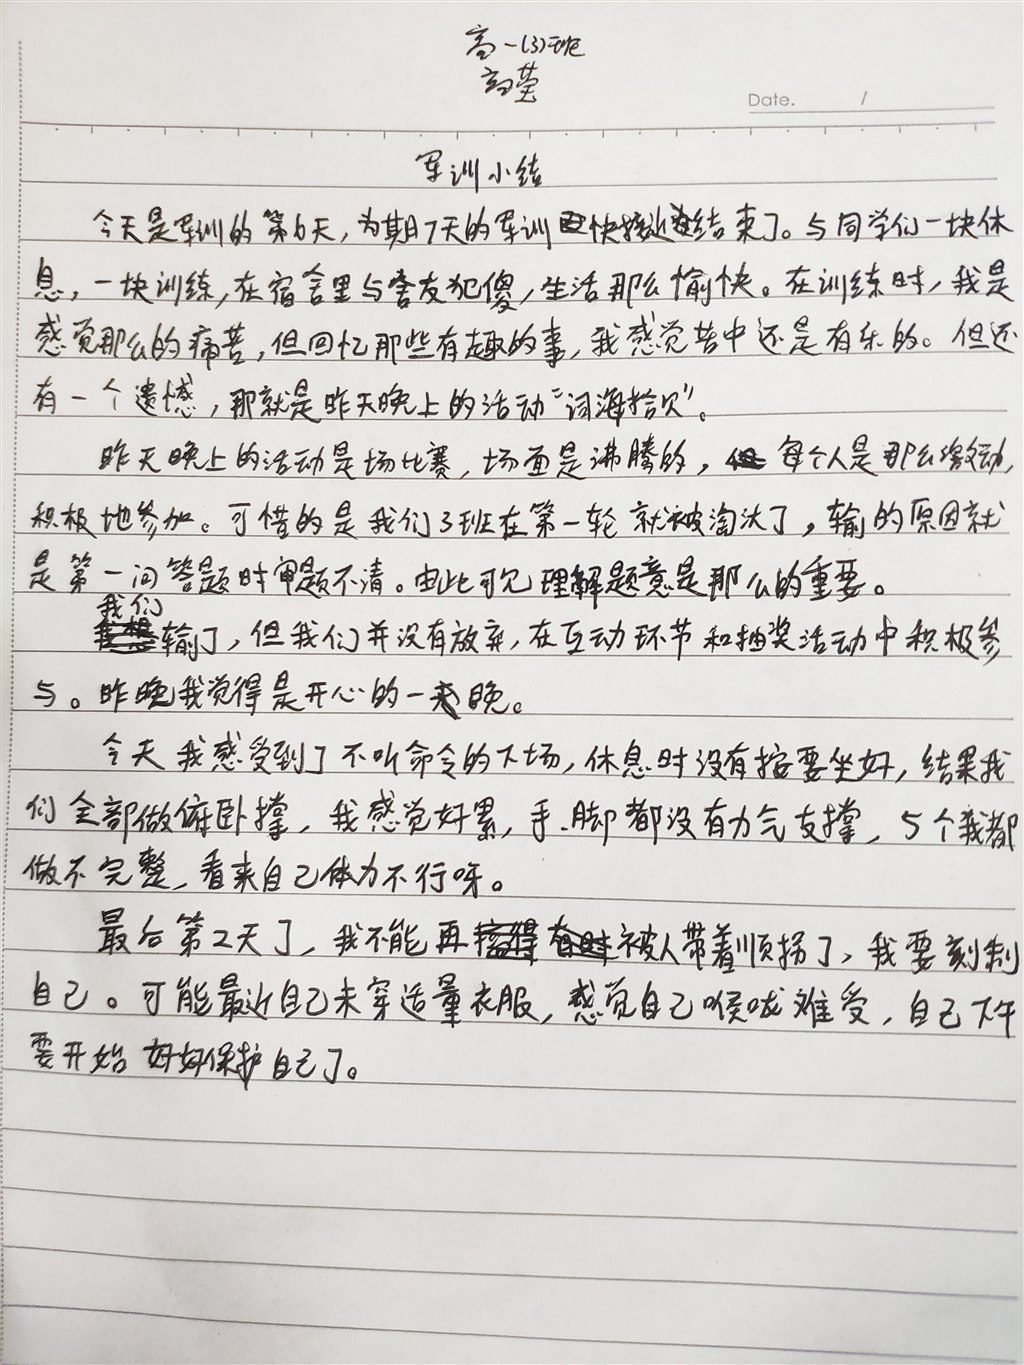 高一(3)班
Date. /
军训小结
今天是军训的第6天,为期7天的军训快接近结束了。与同学们一块休
息,一块训练,在宿舍里与舍友犯傻,生活那么愉快。在训练时,我是
感觉那么的痛苦,但回忆那些有趣的事,我感觉苦中还是有乐的。但还
有一个遗憾,那就是昨天晚上的活动“词海拾贝”。
昨天晚上的活动是场比赛,场面是沸腾的,每个人是那么激动,
积极地参加。可惜的是我们3班在第一轮就被淘汰了,输的原因就
是第一问答题时审题不清。由此可见理解题意是那么的重要。
我们
输了,但我们并没有放弃,在互动环节和抽奖活动中积极参
与。昨晚我觉得是开心的一晚。
今天我感受到了不听命令的下场,休息时没有按要坐好,结果我
们全部做俯卧撑,我感觉好累,手、脚都没有力气支撑,5个我都
做不完整,看来自己体力不行呀。
最后第2天了,我不能再被人带着顺拐了,我要刻制
自己。可能最近自己未穿适量衣服,感觉自己喉咙难受,自己下午
要开始好好保护自己了。